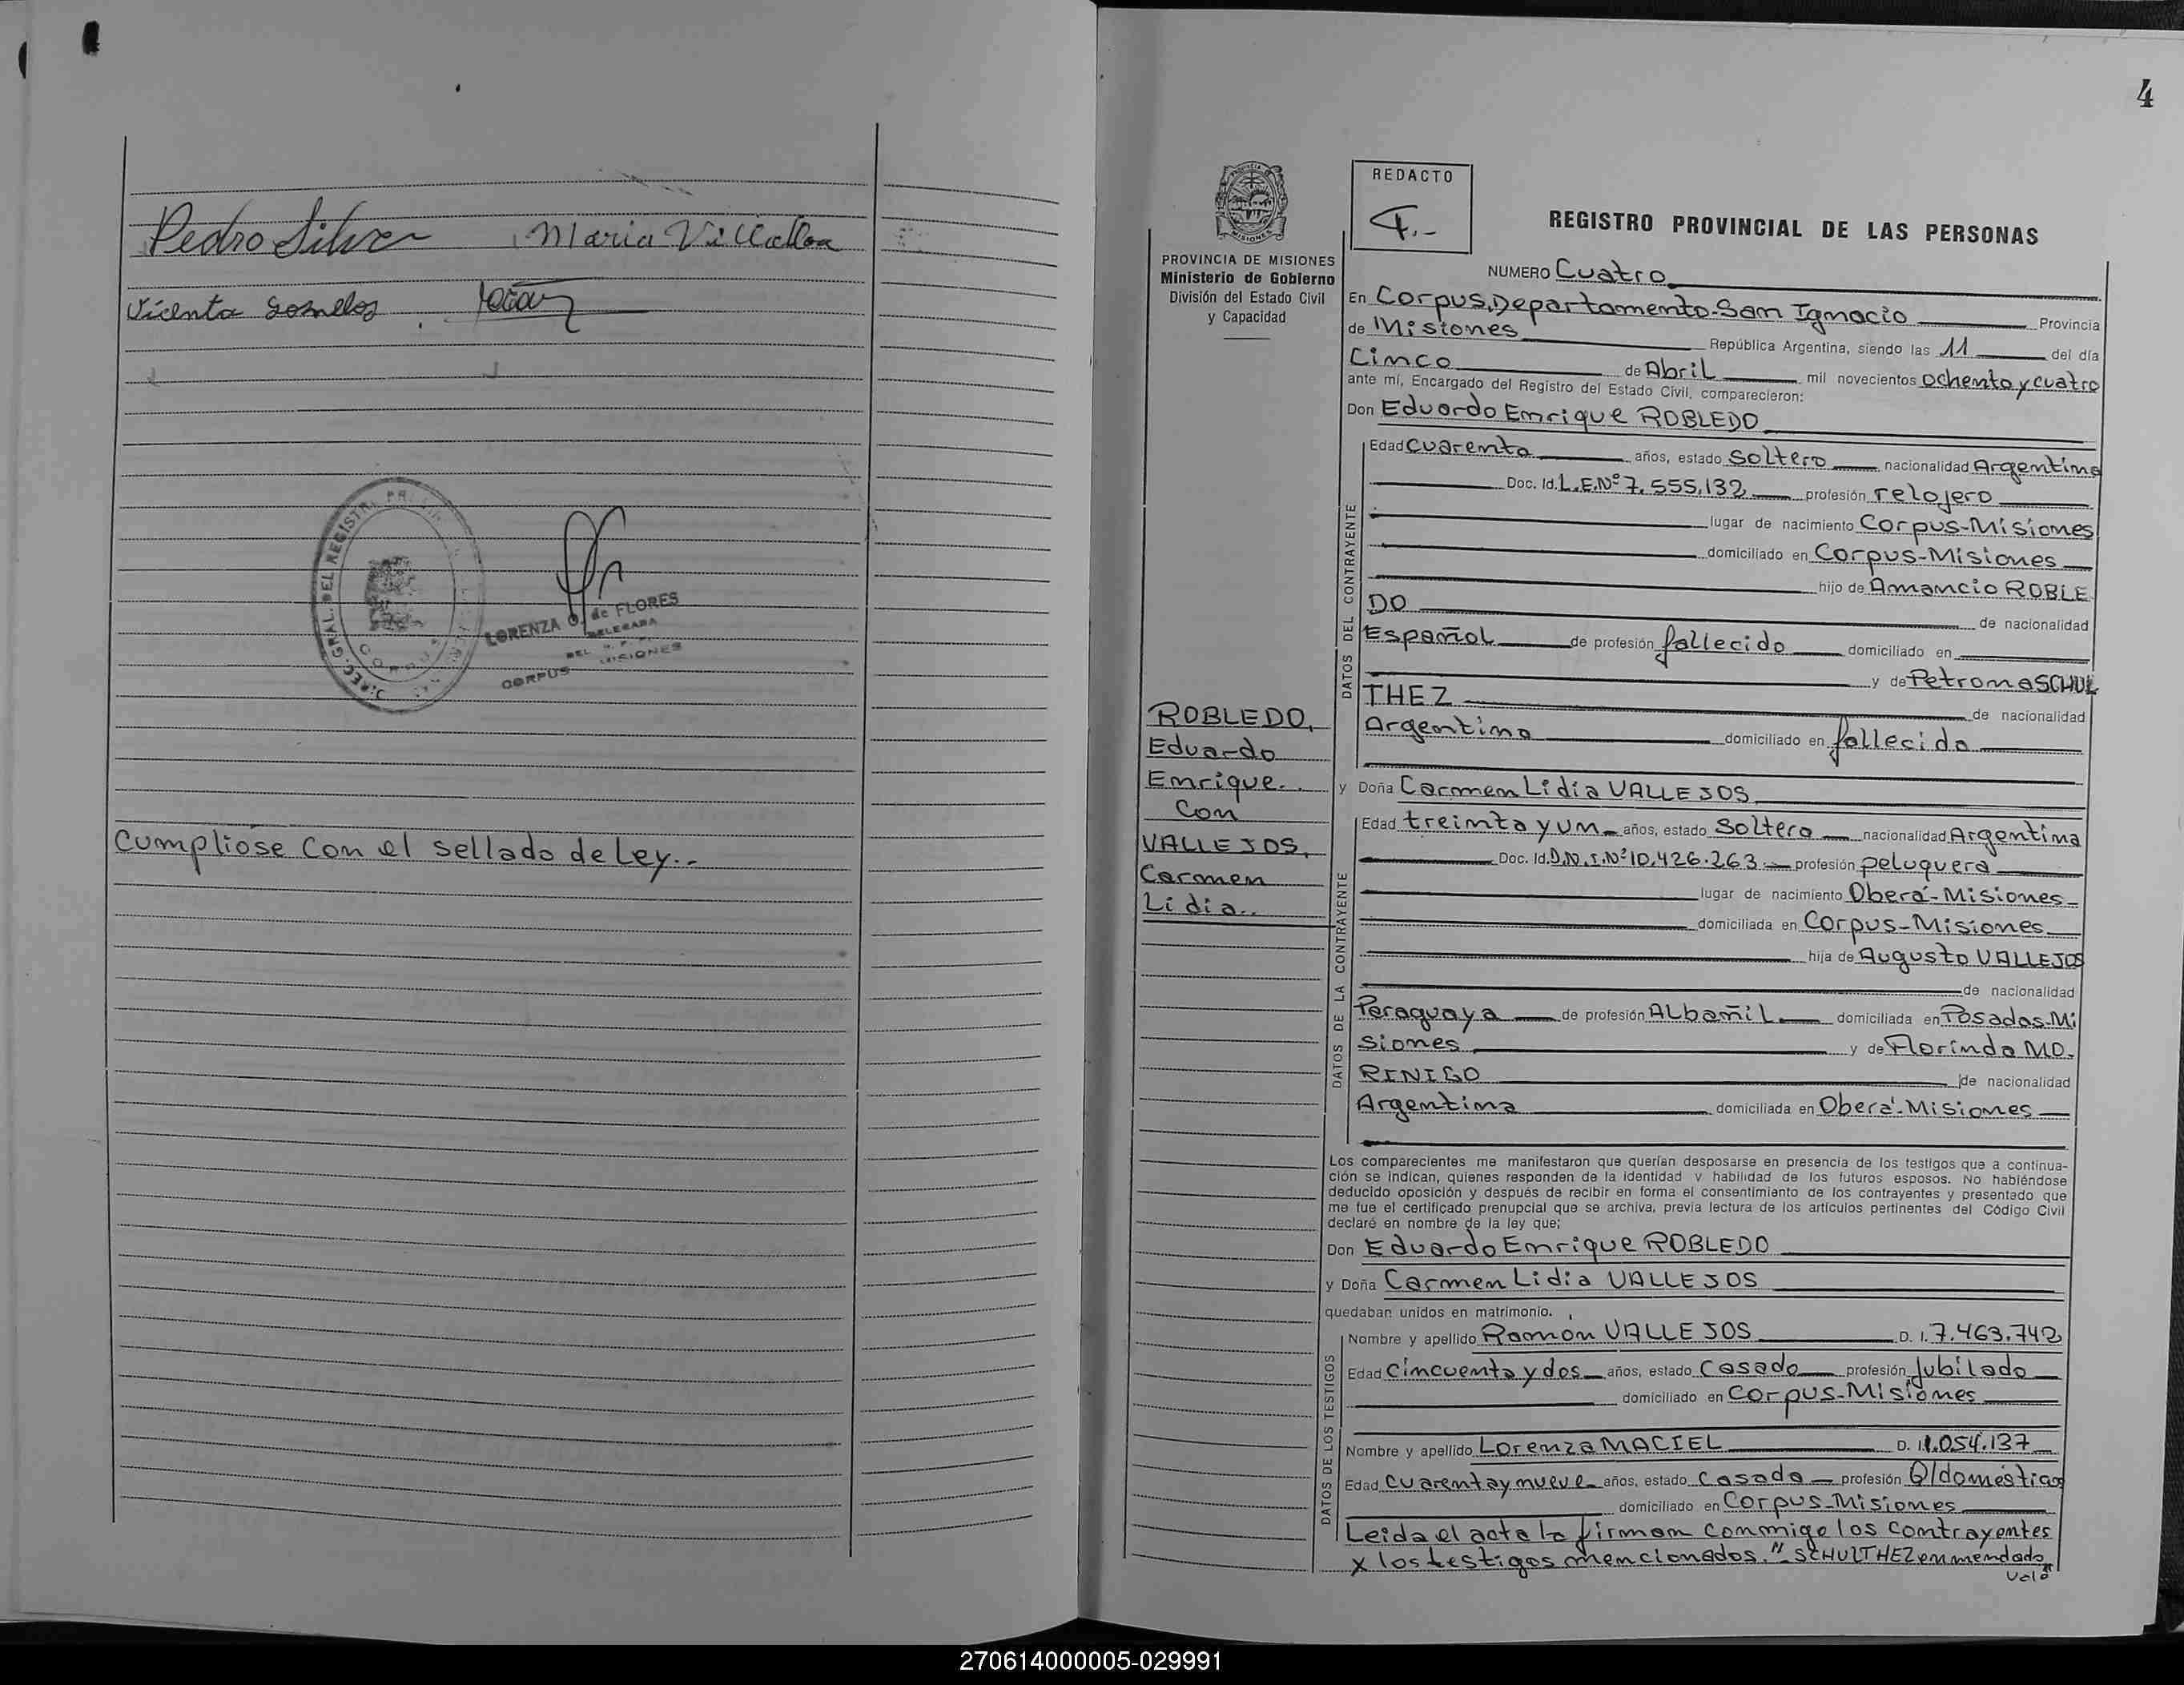 Pedro Silver Maria Villalba
Vicenta
DIREC. GRAL. DEL REGISTRO
CORPUS
LORENZA O. de FLORES
DELEGADA
DEL R. P. P.
CORPUS MISIONES
Cumpliose Con el sellado de Ley.-
4
PROVINCIA DE MISIONES
Ministerio de Gobierno
División del Estado Civil
y Capacidad
REDACTO
4.-
REGISTRO PROVINCIAL DE LAS PERSONAS
NUMERO Cuatro
En Corpus, Departamento San Ignacio Provincia
de Misiones República Argentina, siendo las 11 del día
Cinco de Abril mil novecientos ochenta y cuatro
ante mí, Encargado del Registro del Estado Civil, comparecieron:
Don Eduardo Enrique ROBLEDO
DATOS DEL CONTRAYENTE
Edad Cuarenta años, estado Soltero nacionalidad Argentina
Doc. Id. L.E.Nº 7.555.132 profesión relojero
lugar de nacimiento Corpus-Misiones
domiciliado en Corpus-Misiones
hijo de Amancio ROBLE
DO de nacionalidad
Español de profesión fallecido domiciliado en
y de Petrona SCHUL
THEZ de nacionalidad
Argentina domiciliado en fallecida
ROBLEDO,
Eduardo
Enrique.
Con
VALLEJOS,
Carmen
Lidia..
y Doña Carmen Lidia VALLEJOS
DATOS DE LA CONTRAYENTE
Edad treinta y un años, estado Soltera nacionalidad Argentina
Doc. Id. D.N.I.Nº 10.426.263 profesión peluquera
lugar de nacimiento Oberá-Misiones
domiciliada en Corpus-Misiones
hija de Augusto VALLEJOS
de nacionalidad
Paraguaya de profesión Albañil domiciliada en Posadas-Mi
siones y de Florinda MO-
RINIGO de nacionalidad
Argentina domiciliada en Oberá-Misiones
Los comparecientes me manifestaron que querían desposarse en presencia de los testigos que a continua-
ción se indican, quienes responden de la identidad y habilidad de los futuros esposos. No habiéndose
deducido oposición y después de recibir en forma el consentimiento de los contrayentes y presentado que
me fue el certificado prenupcial que se archiva, previa lectura de los artículos pertinentes del Código Civil
declaré en nombre de la ley que;
Don Eduardo Enrique ROBLEDO
y Doña Carmen Lidia VALLEJOS
quedaban unidos en matrimonio.
DATOS DE LOS TESTIGOS
Nombre y apellido Ramón VALLEJOS D. I. 7.463.742
Edad Cincuenta y dos años, estado Casado profesión Jubilado
domiciliado en Corpus-Misiones
Nombre y apellido Lorenza MACIEL D. I. 1.054.137
Edad Cuarenta y nueve años, estado Casada profesión Q/domésticos
domiciliado en Corpus-Misiones
Leida el acta la firman conmigo los contrayentes
y los testigos mencionados. "SCHULTHEZ enmendado
Vale"
270614000005-029991